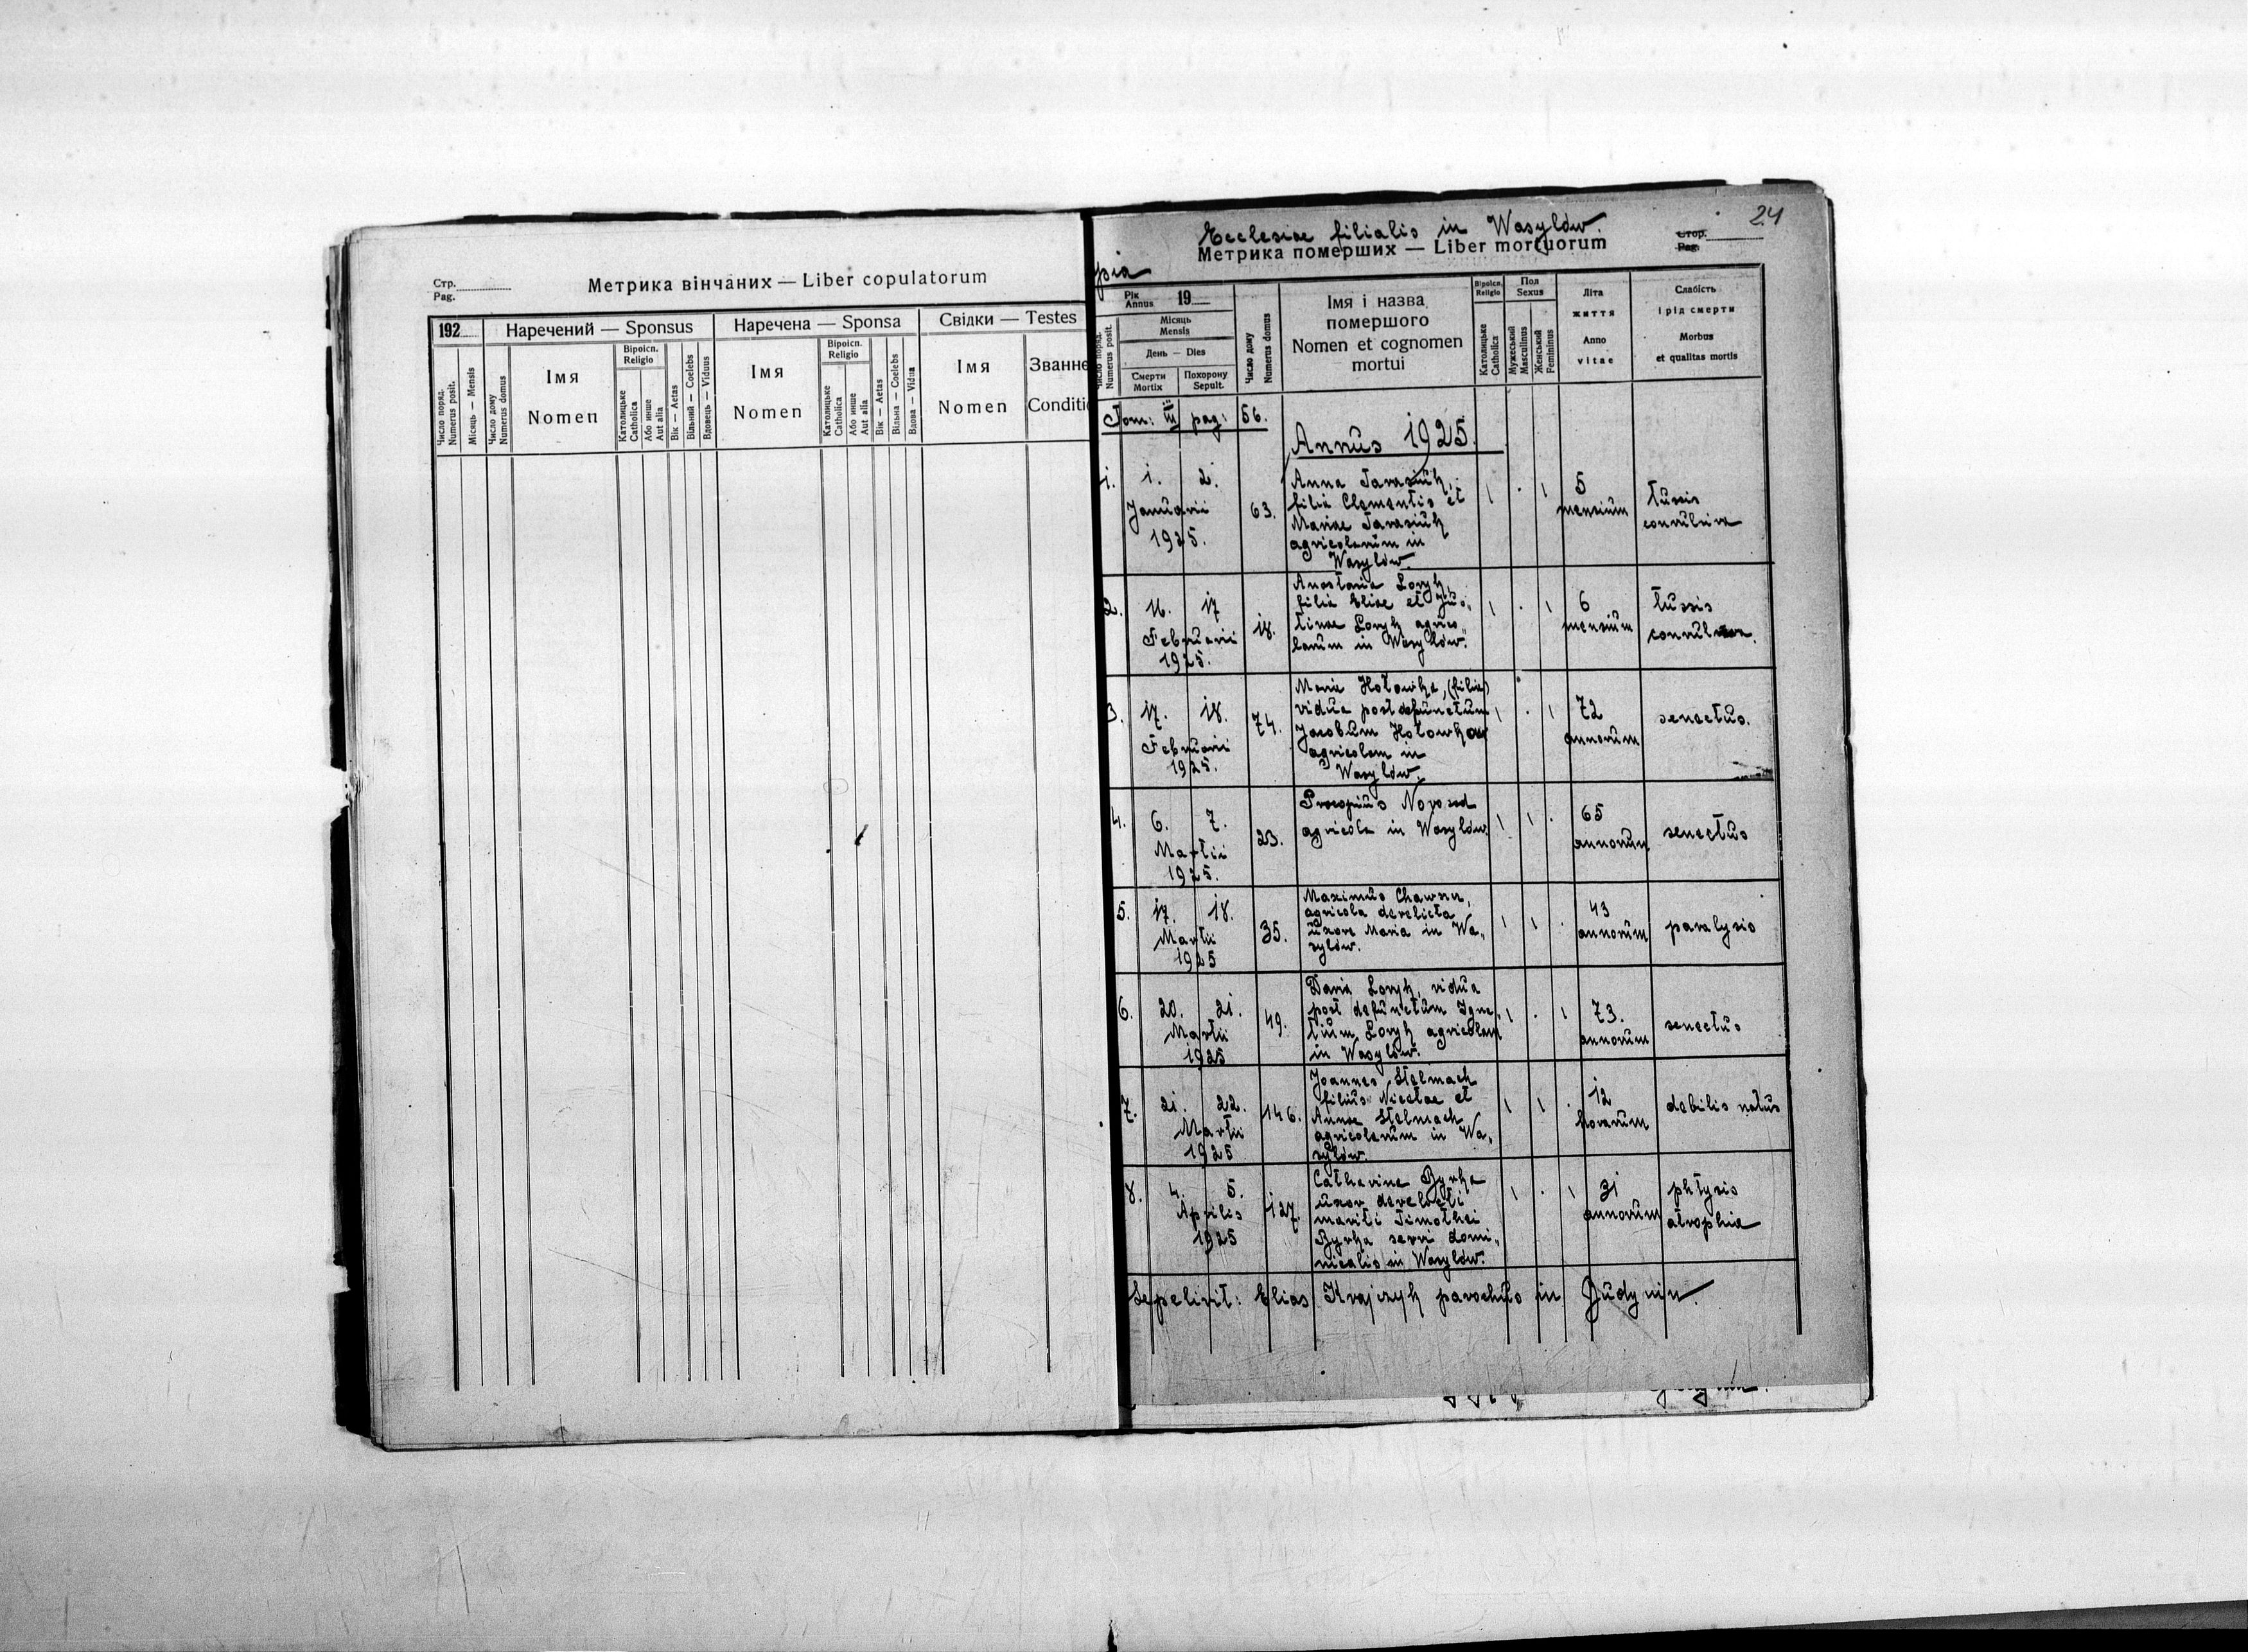 Стр.
Pag.
Метрика вінчаних — Liber copulatorum
192
Наречений — Sponsus
Наречена — Sponsa
Свідки — Testes
Число поряд.
Numerus posit.
Місяць — Mensis
Число дому
Numerus domus
Імя
Nomen
Віроісп.
Religio
Католицьке
Catholica
Або инше
Aut alia
Вік — Aetas
Вільний — Coelebs
Вдовець — Viduus
Імя
Nomen
Віроісп.
Religio
Католицьке
Catholica
Або инше
Aut alia
Вік — Aetas
Вільна — Coelebs
Вдова — Vidua
Імя
Nomen
Званнє
Conditi
24
Ecclesiae filialis in Wasylów.
Метрика померших — Liber mortuorum
Стор.
Pag.
pia
Рік
Annus 19
Число поряд.
Numerus posit.
Місяць
Mensis
День — Dies
Смерти
Mortix
Похорону
Sepult.
Число дому
Numerus domus
Імя і назва
помершого
Nomen et cognomen
mortui
Віроісп.
Religio
Католицьке
Catholica
Пол
Sexus
Мужеський
Masculinus
Женський
Femininus
Літа
життя
Anno
vitae
Слабість
і рід смерти
Morbus
et qualitas mortis
Tom: III pag: 56.
Annus 1925.
1. 1. 2.
Januarii
1925.
63.
Anna Tarasiuk,
filia Clementis et
Mariae Tarasiuk
agricolarum in
Wasylów.
5
mensium
tussis
convulsiva
2. 16. 17
Februarii
1925.
18.
Anastasia Loryk,
filia Eliae et Jus„
tinae Loryk agrico„
larum in Wasylów.
6
mensium
tussis
convulsiva.
3. 17. 18.
Februarii
1925.
74.
Maria Hołowka, (filia)
vidua post defunctum
Jacobum Hołowka
agricolam in
Wasylów.
72
annorum
senectus.
4. 6. 7.
Martii
1925.
23.
Procopius Nowosad
agricola in Wasylów.
65
annorum
senectus
5. 17. 18.
Martii
1925
35.
Maximus
agricola derelicta
uxore Maria in Wa„
sylów.
43
annorum
paralysis
6. 20. 21.
Martii
1925
49.
Daria Loryk, vidua
post defunctum Igna„
tium Loryk agricolam
in Wasylów.
73.
annorum
senectus
7. 21. 22.
Martii
1925
146.
Joannes Stelmach
filius Nicetae et
Annae Stelmach
agricolarum in Wa„
sylów.
12
horarum
debilis natus
8. 4. 5.
Aprilis
1925
127.
Catharina Byrka
uxor derelicti
mariti Timothei
Byrka servi domi„
nicalis in Wasylów.
31
annorum
phtysis
atrophia
Sepelivit: Elias Krajczyk parochus in Budynin.